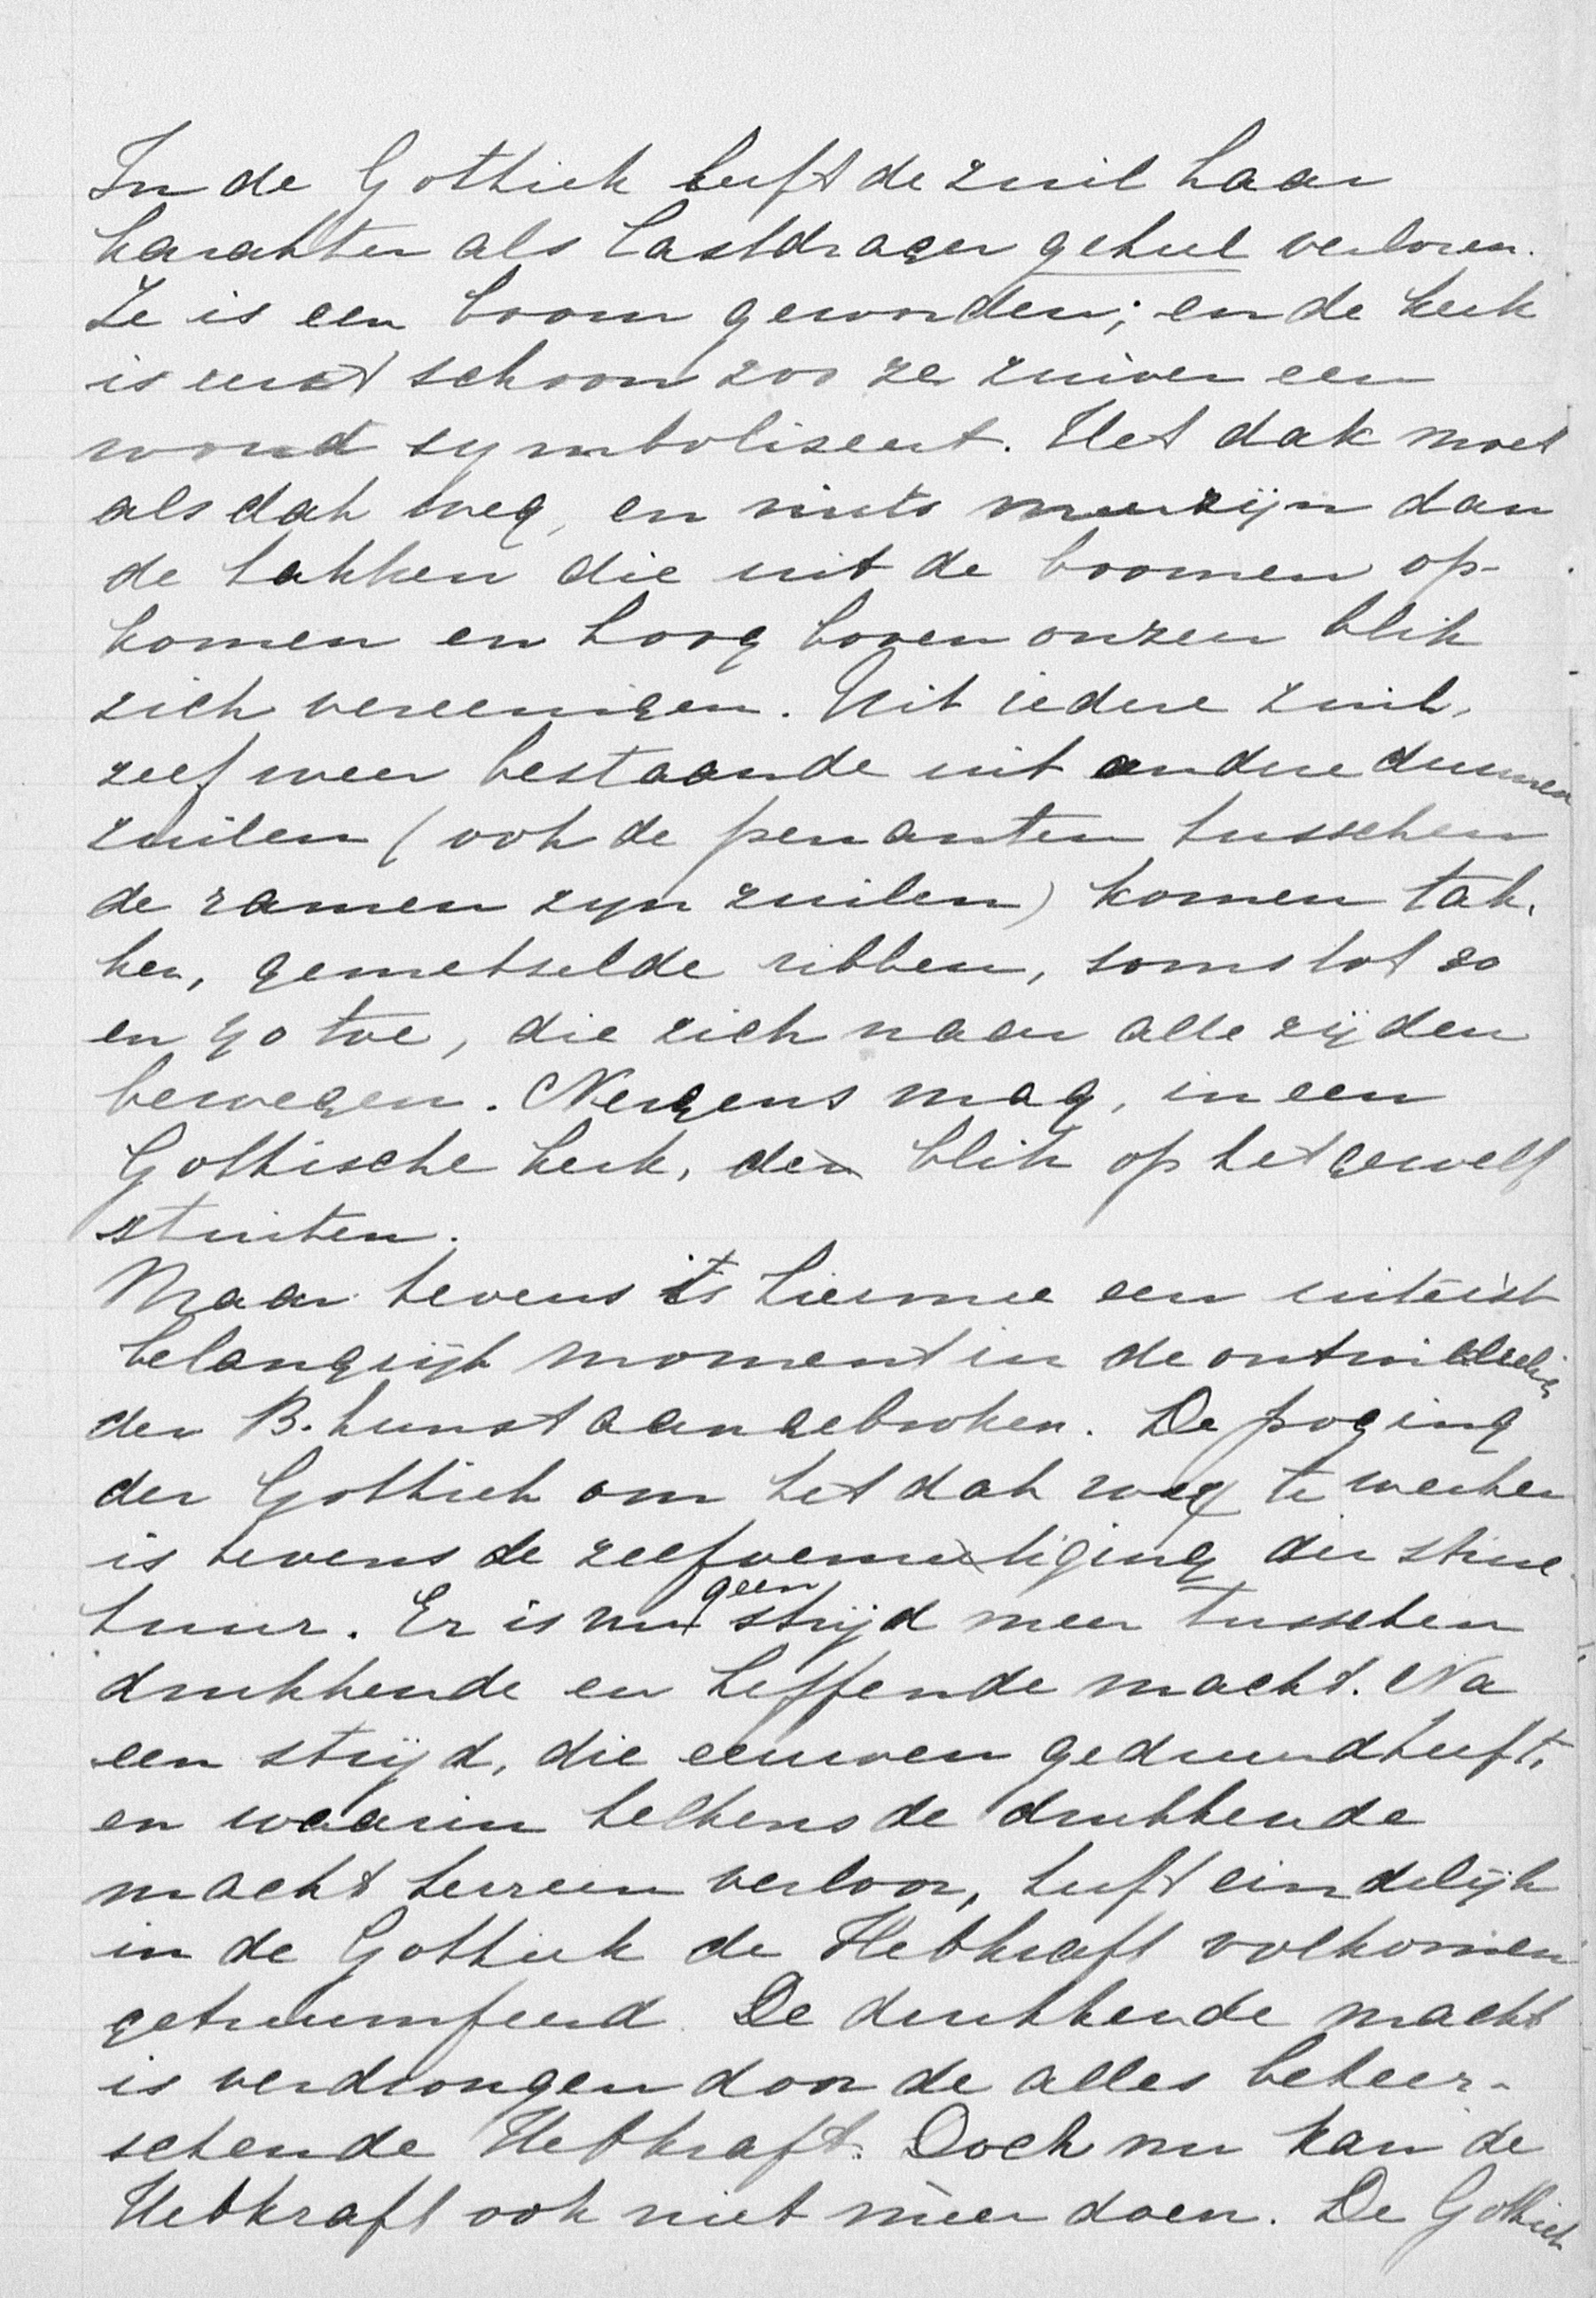 In de Gothiek heeft de zuil haar
karakter als lastdrager geheel verloren.
Ze is een boom geworden; en de kerk
is eerst schoon zoo ze zuiver een
woud symboliseert. Het dak moet
als dak weg, en niets meer zijn dan
de takken die uit de boomen op-
komen en hoog boven onzen blik
zich vereenigen. Uit iedere zuil,
zelf weer bestaande uit andere dunnen
zuilen (ook de penanten tusschen
de ramen zyn zuilen) komen tak-
ken, gemetselde ribben, soms tot
en toe, die zich naar alle zijden
bewegen. Nergens mag, in een
Gothische kerk, den blik op het gewelf
stuiten.
Maar tevens is hiermee een uiterst
belangrijk moment in de ontwikkeling
der B. kunst aangebroken. De poging
der Gothiek om het dak weg te werken
is tevens de zelfvernietiging der struc-
tuur. Er is nu geen strijd meer tusschen
drukkende en heffende macht. Na
een strijd, die eeuwen geduurd heeft,
en waarin telkens de drukkende
macht terrein verloor, heeft eindelijk
in de Gothiek de Hefkraft volkomen
getriumfeerd. De drukkende macht
is verdrongen door de alles beheer-
schende Hefkraft. Doch nu kan de
Hefkraft ook niet méer doen. De Gothiek